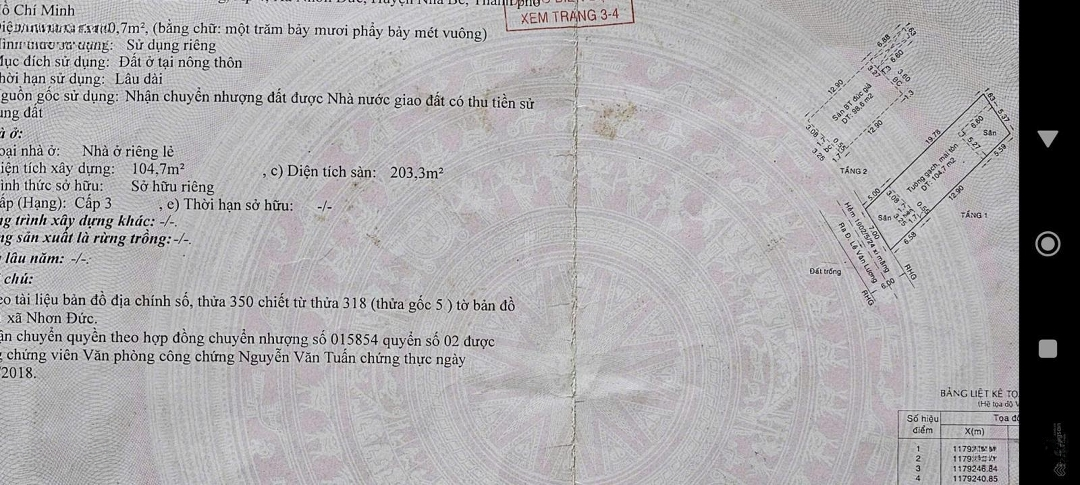 Nhơn Đức, Huyện Nhà Bè, Thành phố
Hồ Chí Minh
0,7m², (bằng chữ: một trăm bảy mươi phẩy bảy mét vuông)
Sử dụng riêng
Mục đích sử dụng: Đất ở tại nông thôn
hời hạn sử dụng: Lâu dài
guồn gốc sử dụng: Nhận chuyển nhượng đất được Nhà nước giao đất có thu tiền sử
ụng đất
à ở:
oại nhà ở: Nhà ở riêng lẻ
iện tích xây dựng: 104,7m² , c) Diện tích sàn: 203,3m²
ình thức sở hữu: Sở hữu riêng
ấp (Hạng): Cấp 3 , e) Thời hạn sở hữu: -/-
ng trình xây dựng khác: -/-.
ng sản xuất là rừng trồng:-/-.
lâu năm: -/-.
chú:
eo tài liệu bản đồ địa chính số, thửa 350 chiết từ thửa 318 (thửa gốc 5 ) tờ bản đồ
xã Nhơn Đức.
ận chuyển quyền theo hợp đồng chuyển nhượng số 015854 quyển số 02 được
g chứng viên Văn phòng công chứng Nguyễn Văn Tuấn chứng thực ngày
2018.
XEM TRANG 3-4
6.88
6.60
3.27
3.60
BC
12.90
Sàn BT đúc giả
DT: 98,6 m2
12.90
3.08
3.25
TẦNG 2
1.83
5.37
6.60
Sân
5.27
5.59
19.78
Tường gạch, mái tôn
DT: 104,7 m2
12.90
5.00
3.08
0.56
Sân 3.25
6.58
TẦNG 1
Hẻm 1902/5/24 xi măng
7.00
Ra Đ. Lê Văn Lương
6.00
RHG
RHG
Đất trống
BẢNG LIỆT KÊ TO
(Hệ tọa độ V
Số hiệu điểm
Tọa độ
X(m)
1
2
3 1179246.84
4 1179240.85